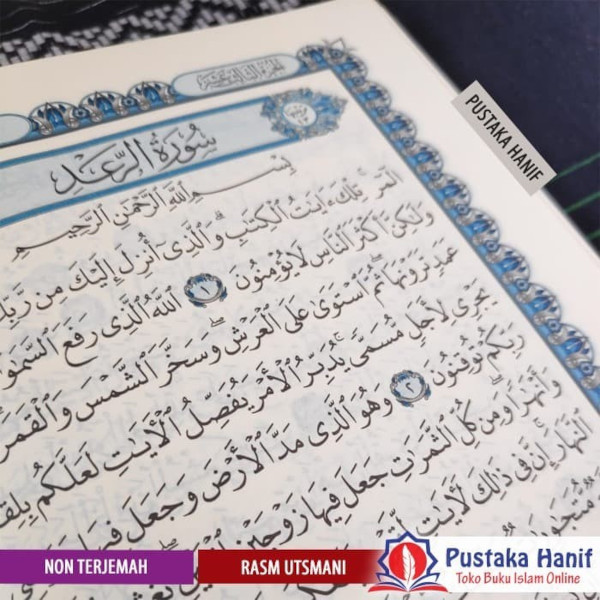 سُورَةُ الرَّعْدِ
بِسْمِ ٱللَّهِ ٱلرَّحْمَٰنِ ٱلرَّحِيمِ
الٓمٓر ۚ تِلْكَ ءَايَٰتُ ٱلْكِتَٰبِ ۗ وَٱلَّذِىٓ أُنزِلَ إِلَيْكَ مِن رَّبِّكَ
وَلَٰكِنَّ أَكْثَرَ ٱلنَّاسِ لَا يُؤْمِنُونَ ١ ٱللَّهُ ٱلَّذِى رَفَعَ
عَمَدٍ تَرَوْنَهَا ۖ ثُمَّ ٱسْتَوَىٰ عَلَى ٱلْعَرْشِ ۖ وَسَخَّرَ ٱلشَّمْسَ وَٱلْقَمَرَ
يَجْرِى لِأَجَلٍ مُّسَمًّى ۚ يُدَبِّرُ ٱلْأَمْرَ يُفَصِّلُ ٱلْءَايَٰتِ لَعَلَّكُم بِلِقَآءِ
رَبِّكُمْ تُوقِنُونَ ٢ وَهُوَ ٱلَّذِى مَدَّ ٱلْأَرْضَ وَجَعَلَ فِيهَا
وَأَنْهَٰرًا ۖ وَمِن كُلِّ ٱلثَّمَرَٰتِ جَعَلَ فِيهَا زَوْجَيْنِ
ٱلنَّهَارَ ۚ إِنَّ فِى ذَٰلِكَ لَءَايَٰتٍ
PUSTAKA HANIF
NON TERJEMAH
RASM UTSMANI
Pustaka Hanif
Toko Buku Islam Online